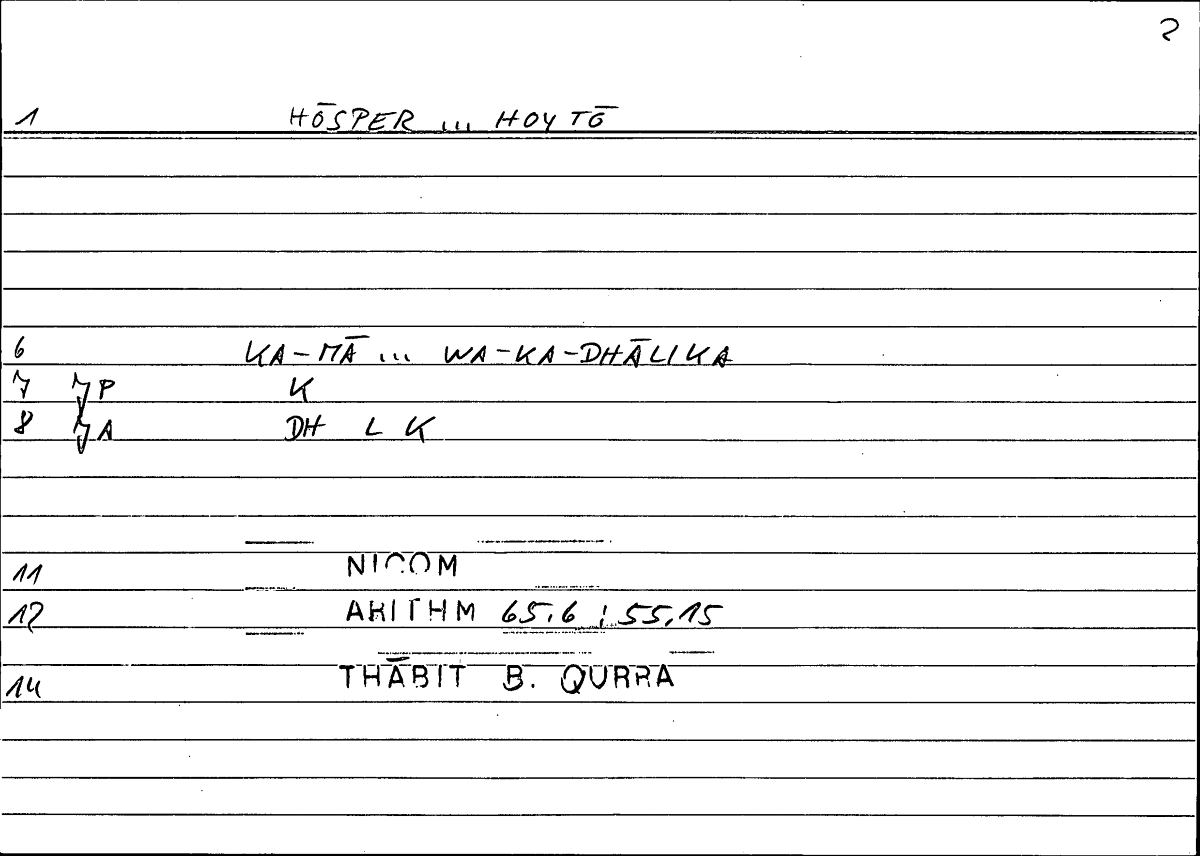 2
1 HŌSPER ... HOYTŌ
6 KA-MĀ ... WA-KA-DHĀLIKA
7 7P K
8 7A DH L K
11 NICOM
12 ARITHM 65,6 ; 55,15
14 THĀBIT B. QURRA